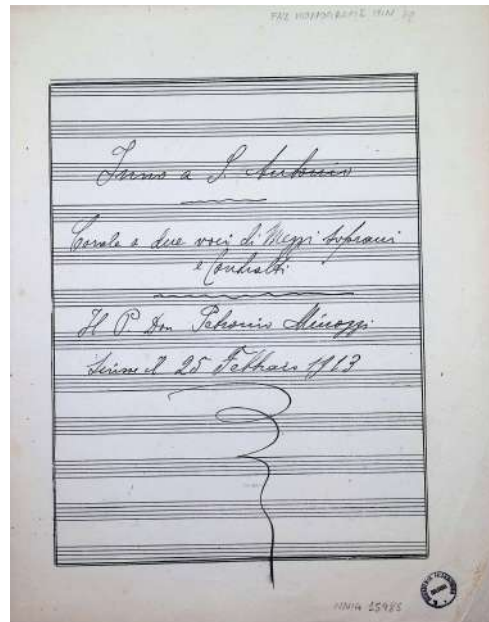 Inno a S. Antonio
Corale a due voci di Mezzi soprani
e Contralti
Il P. Don Petronio Minozzi
scrisse il 25 Febbraio 1913
NNIG 15985